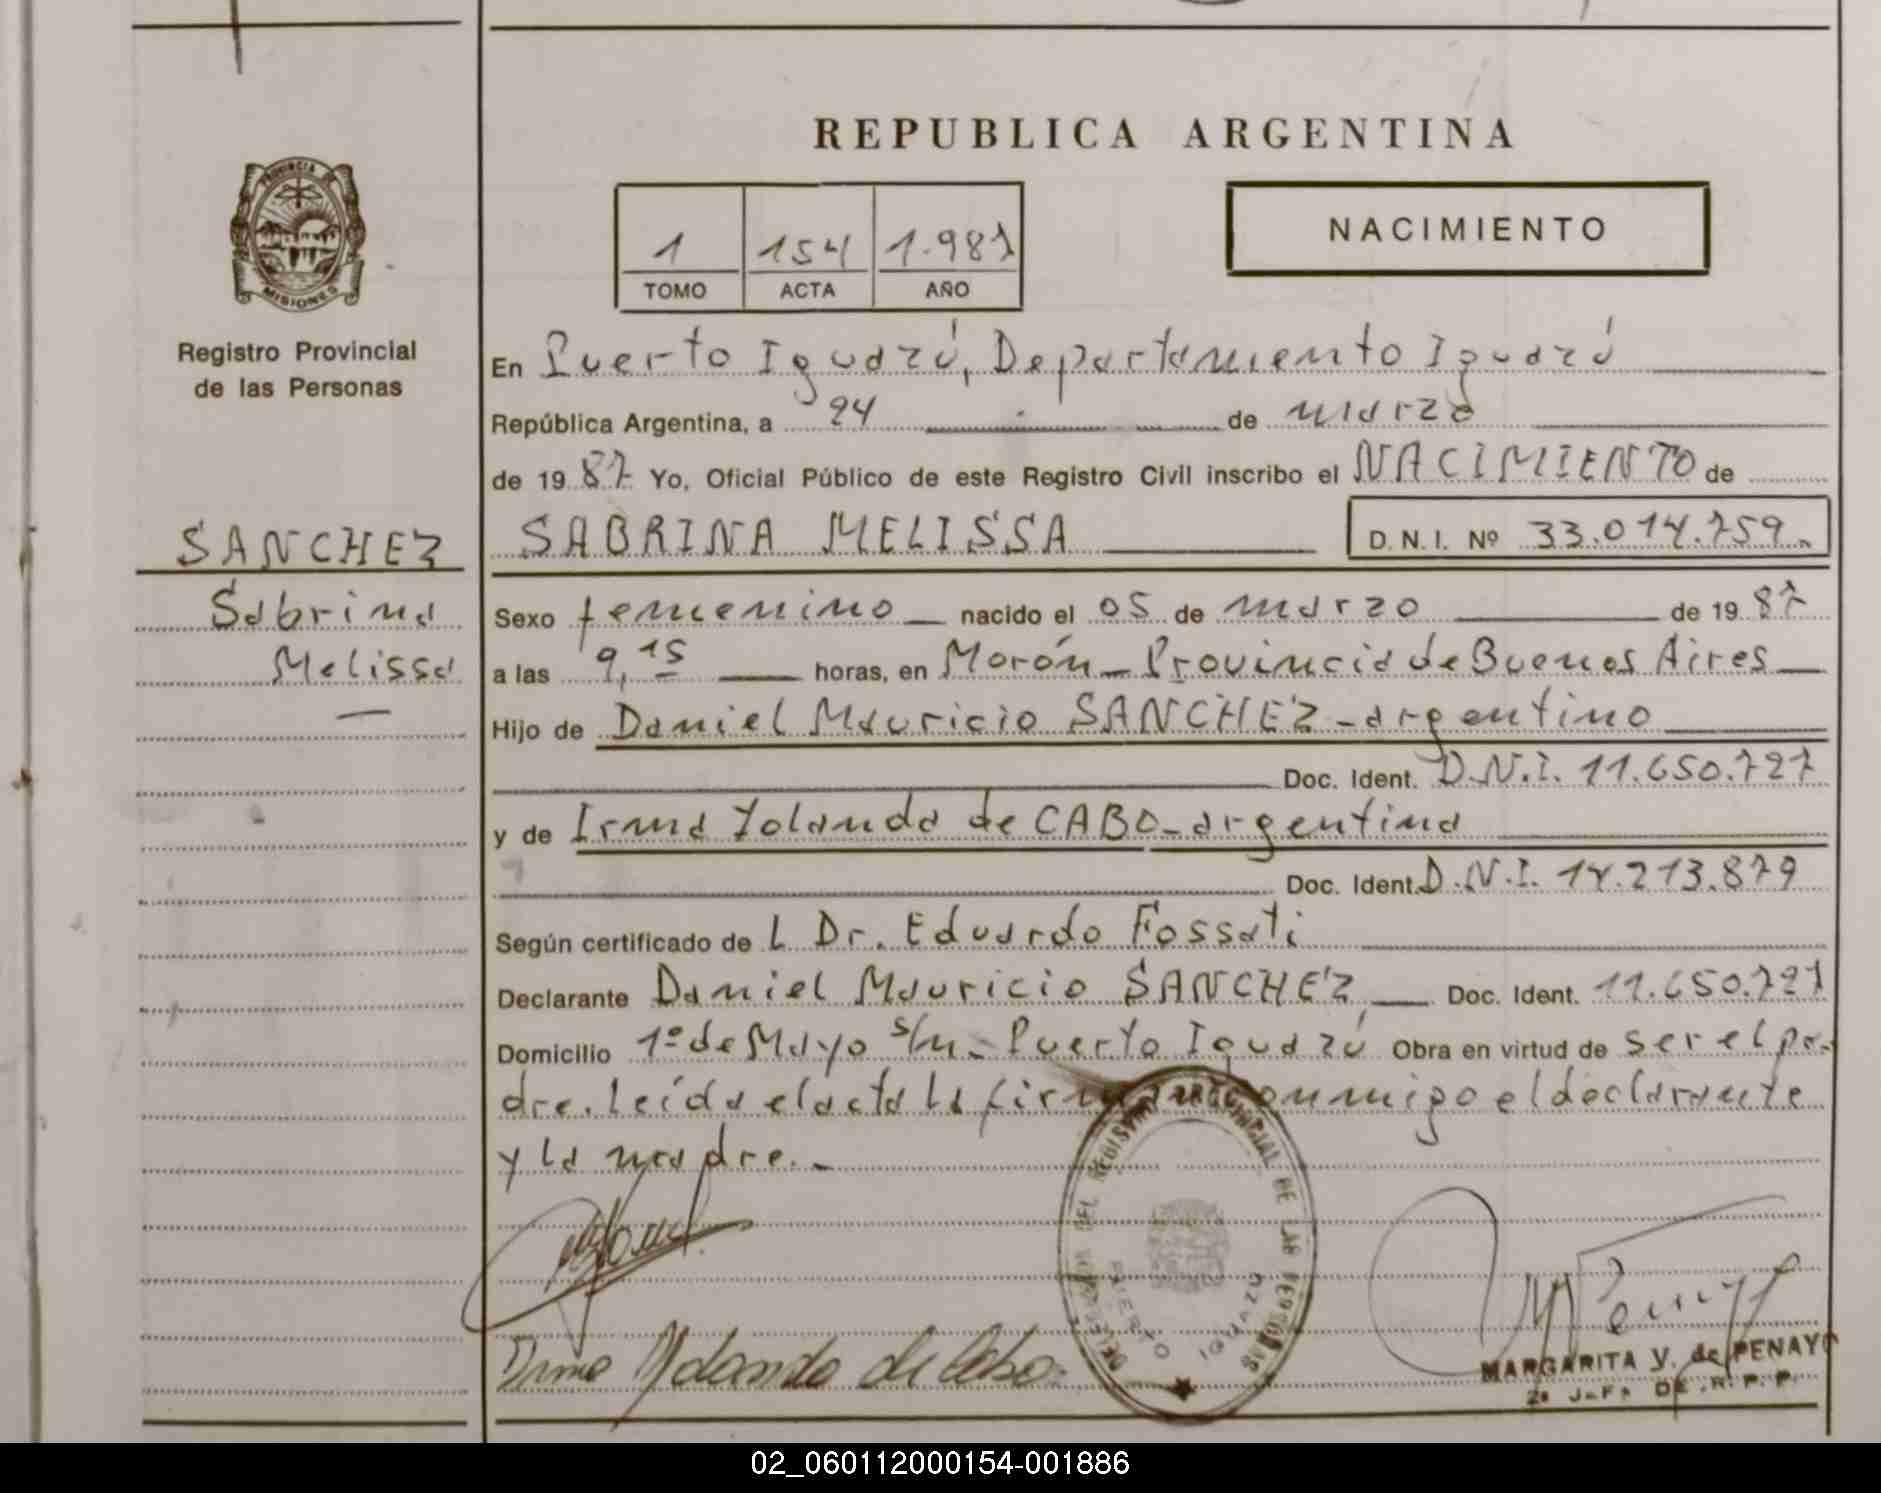 REPUBLICA ARGENTINA
PROVINCIA DE
MISIONES
Registro Provincial
de las Personas
NACIMIENTO
1 154 1.987
TOMO ACTA AÑO
En Puerto Iguazú, Departamento Iguazú
República Argentina, a 24 de marzo
de 19 87 Yo, Oficial Público de este Registro Civil inscribo el NACIMIENTO de
SANCHEZ
Sabrina
Melissa
SABRINA MELISSA D.N.I. Nº 33.014.759.
Sexo femenino nacido el 05 de marzo de 19 87
a las 9,15 horas, en Morón - Provincia de Buenos Aires
Hijo de Daniel Mauricio SANCHEZ - argentino
Doc. Ident. D.N.I. 11.650.727
y de Irma Yolanda de CABO - argentina
Doc. Ident. D.N.I. 14.213.879
Según certificado de L Dr. Eduardo Fossati
Declarante Daniel Mauricio SANCHEZ, Doc. Ident. 11.650.727
Domicilio 1º de Mayo s/n. Puerto Iguazú Obra en virtud de ser el pa-
dre. Leída el acta la firman conmigo el declarante
y la madre. -
DELEGACION DEL REGISTRO PROVINCIAL DE LAS PERSONAS
PUERTO IGUAZU
Irma Yolanda de Cabo.
MARGARITA V. de PENAYO
2º Jefe DE R.P.P.
02_060112000154-001886